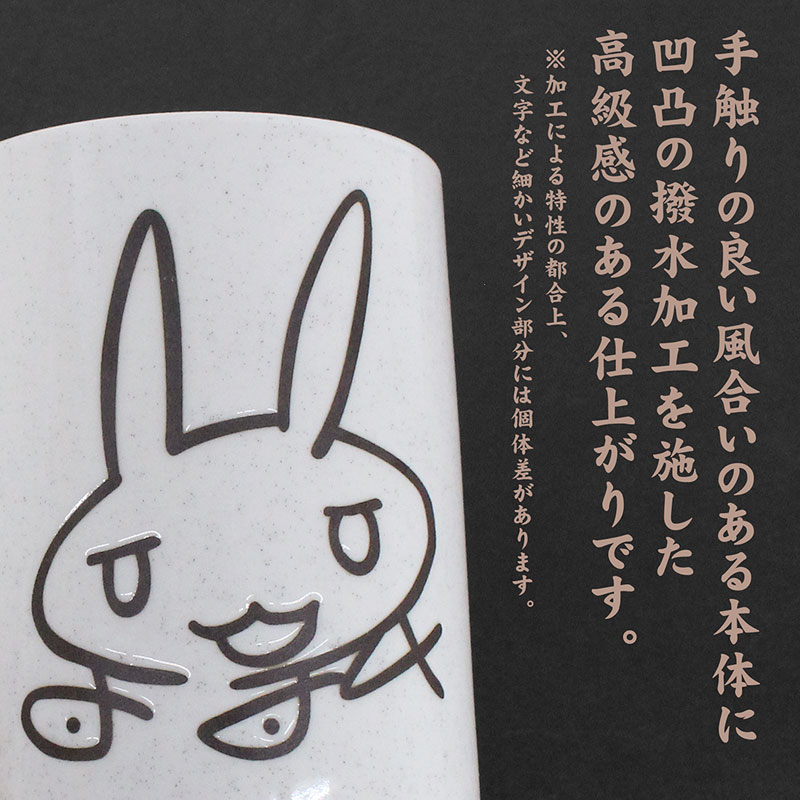 手触りの良い風合いのある本体に
凹凸の撥水加工を施した
高級感のある仕上がりです。
※加工による特性の都合上、
文字など細かいデザイン部分には個体差があります。